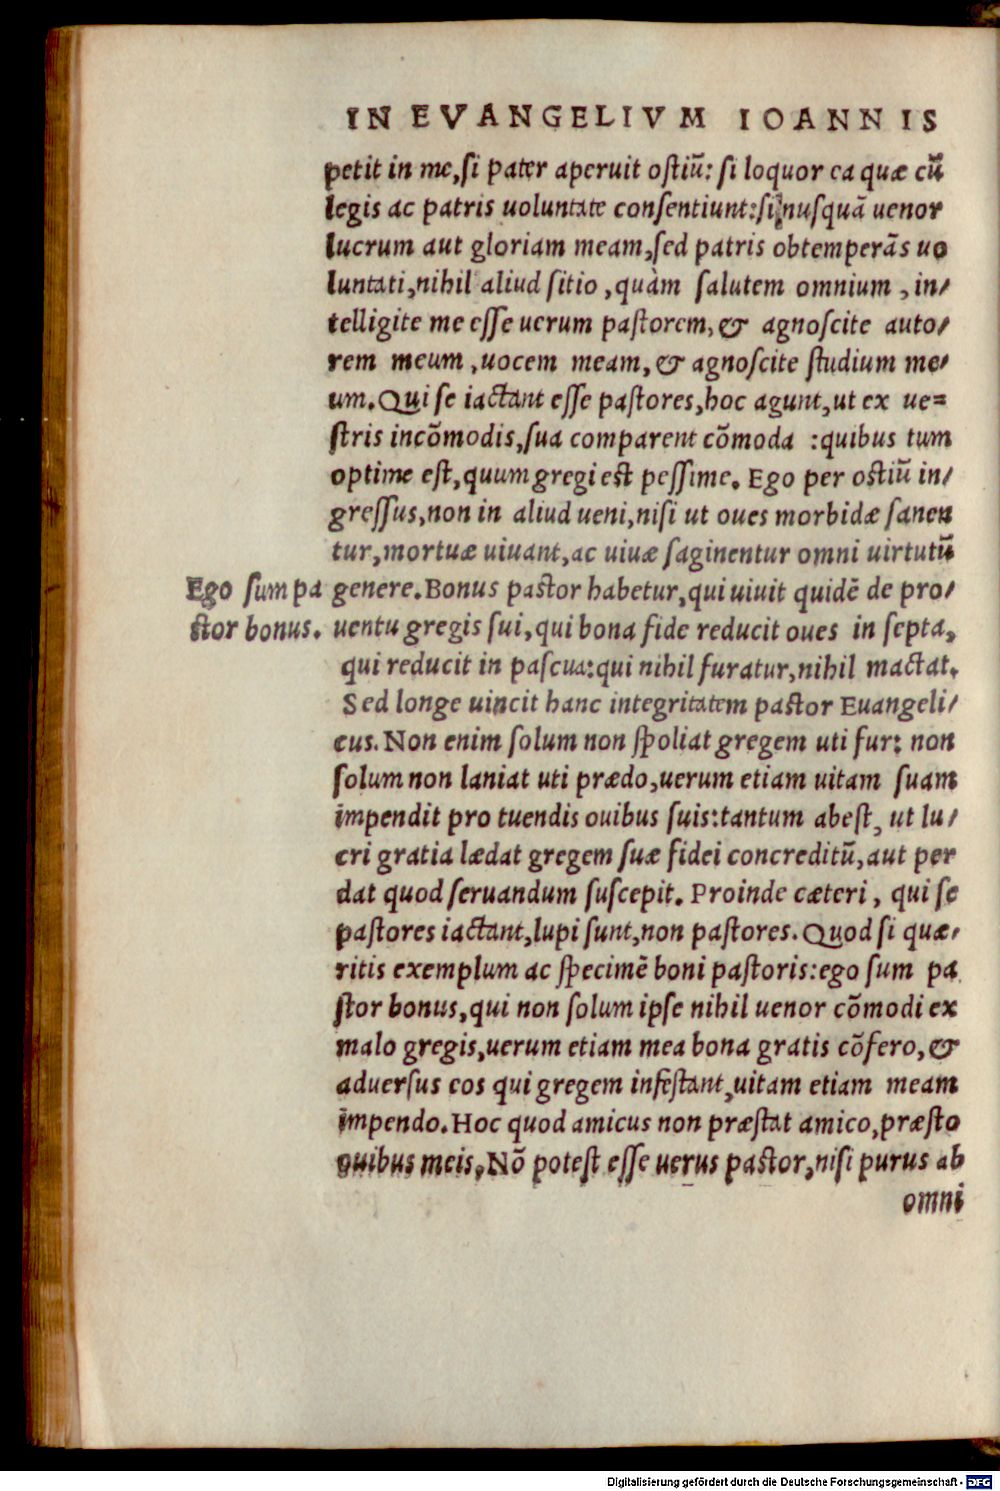 IN EVANGELIVM IOANNIS
petit in me, si pater aperuit ostiũ: si loquor ea quæ cũ
legis ac patris uoluntate consentiunt: si nusquã uenor
lucrum aut gloriam meam, sed patris obtemperãs uo
luntati, nihil aliud sitio, quàm salutem omnium, in/
telligite me esse uerum pastorem, & agnoscite auto/
rem meum, uocem meam, & agnoscite studium me/
um. Qui se iactant esse pastores, hoc agunt, ut ex ue=
stris incõmodis, sua comparent cõmoda : quibus tum
optime est, quum gregi est pessime. Ego per ostiũ in/
gressus, non in aliud ueni, nisi ut oues morbidæ sanen
tur, mortuæ uiuant, ac uiuæ saginentur omni uirtutũ
Ego sum pa
stor bonus.
genere. Bonus pastor habetur, qui uiuit quidẽ de pro/
uentu gregis sui, qui bona fide reducit oues in septa,
qui reducit in pascua: qui nihil furatur, nihil mactat.
Sed longe uincit hanc integritatem pastor Euangeli/
cus. Non enim solum non spoliat gregem uti fur: non
solum non laniat uti prædo, uerum etiam uitam suam
impendit pro tuendis ouibus suis: tantum abest, ut lu/
cri gratia lædat gregem suæ fidei concreditũ, aut per
dat quod seruandum suscepit. Proinde cæteri, qui se
pastores iactant, lupi sunt, non pastores. Quod si quæ/
ritis exemplum ac specimẽ boni pastoris: ego sum pa
stor bonus, qui non solum ipse nihil uenor cõmodi ex
malo gregis, uerum etiam mea bona gratis cõfero, &
aduersus eos qui gregem infestant, uitam etiam meam
impendo. Hoc quod amicus non præstat amico, præsto
ouibus meis. Nõ potest esse uerus pastor, nisi purus ab
omni
Digitalisierung gefördert durch die Deutsche Forschungsgemeinschaft - DFG